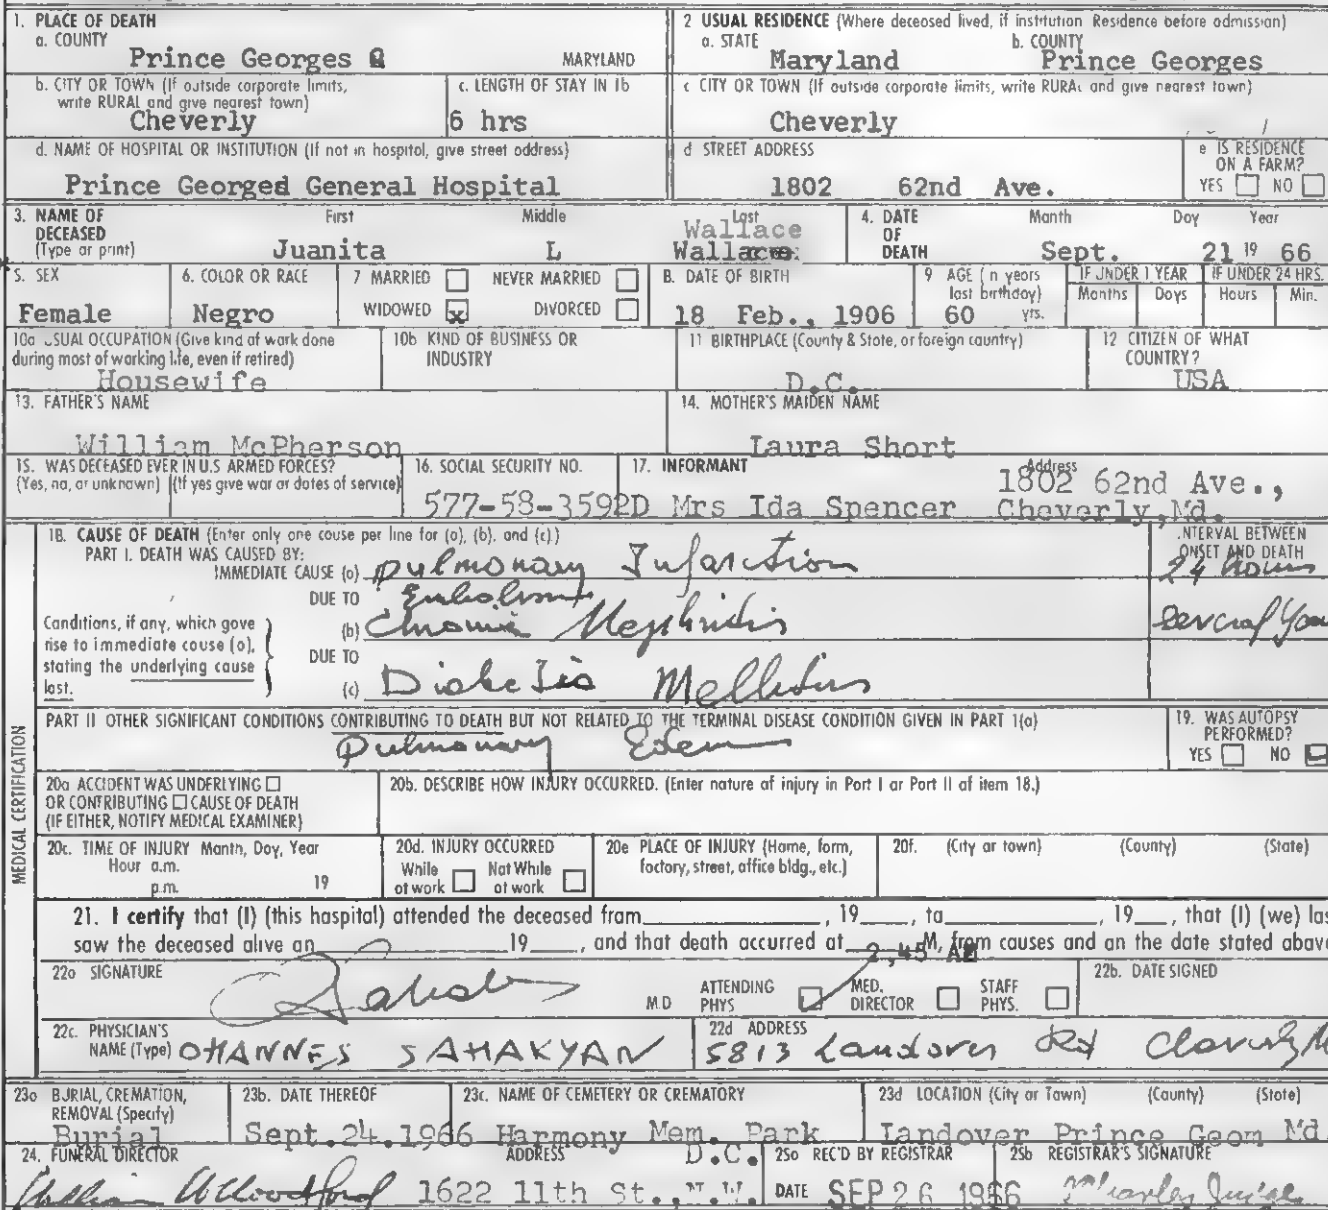 1. PLACE OF DEATH
a. COUNTY
Prince Georges
MARYLAND
2 USUAL RESIDENCE (Where deceased lived, if institution Residence before admission)
a. STATE
Maryland
b. COUNTY
Prince Georges
b. CITY OR TOWN (If outside corporate limits,
write RURAL and give nearest town)
Cheverly
c. LENGTH OF STAY IN 1b
6 hrs
c CITY OR TOWN (If outside corporate limits, write RURAL and give nearest town)
Cheverly
d. NAME OF HOSPITAL OR INSTITUTION (If not in hospital, give street address)
Prince Georged General Hospital
d STREET ADDRESS
1802 62nd Ave.
e IS RESIDENCE
ON A FARM?
YES NO
3. NAME OF
DECEASED
(Type or print)
First
Juanita
Middle
L
Last
Wallace
Wallace
4. DATE
OF
DEATH
Month Day Year
Sept. 21 19 66
5. SEX
Female
6. COLOR OR RACE
Negro
7 MARRIED NEVER MARRIED
WIDOWED x DIVORCED
8. DATE OF BIRTH
18 Feb., 1906
9 AGE (In years
last birthday)
60 yrs.
IF UNDER 1 YEAR
Months Days
IF UNDER 24 HRS.
Hours Min.
10a USUAL OCCUPATION (Give kind of work done
during most of working life, even if retired)
Housewife
10b KIND OF BUSINESS OR
INDUSTRY
11 BIRTHPLACE (County & State, or foreign country)
D.C.
12 CITIZEN OF WHAT
COUNTRY?
USA
13. FATHER'S NAME
William McPherson
14. MOTHER'S MAIDEN NAME
Laura Short
15. WAS DECEASED EVER IN U.S. ARMED FORCES?
(Yes, no, or unknown) (If yes give war or dates of service)
16. SOCIAL SECURITY NO.
577-58-3592D
17. INFORMANT
Mrs Ida Spencer
Address
1802 62nd Ave.,
Cheverly, Md.
18. CAUSE OF DEATH (Enter only one cause per line for (a), (b), and (c).)
PART I. DEATH WAS CAUSED BY:
IMMEDIATE CAUSE (a) Pulmonary Infarction
INTERVAL BETWEEN
ONSET AND DEATH
24 hours
DUE TO Embolism
(b) Chronic Nephritis
Several
Conditions, if any, which gave
rise to immediate cause (a),
stating the underlying cause
last.
DUE TO
(c) Diabetis Mellitus
PART II OTHER SIGNIFICANT CONDITIONS CONTRIBUTING TO DEATH BUT NOT RELATED TO THE TERMINAL DISEASE CONDITION GIVEN IN PART 1(a)
Pulmonary Edem
19. WAS AUTOPSY
PERFORMED?
YES NO
MEDICAL CERTIFICATION
20a ACCIDENT WAS UNDERLYING
OR CONTRIBUTING CAUSE OF DEATH
(IF EITHER, NOTIFY MEDICAL EXAMINER)
20b. DESCRIBE HOW INJURY OCCURRED. (Enter nature of injury in Part I or Part II of item 18.)
20c. TIME OF INJURY Month, Day, Year
Hour a.m.
p.m. 19
20d. INJURY OCCURRED
While Not While
at work at work
20e PLACE OF INJURY (Home, form,
factory, street, office bldg., etc.)
20f. (City or town) (County) (State)
21. I certify that (I) (this hospital) attended the deceased from , 19 , to , 19 , that (I) (we) las
saw the deceased alive on 19 , and that death occurred at 2,45 AM, from causes and on the date stated above
22a SIGNATURE
M D
ATTENDING
PHYS
MED.
DIRECTOR
STAFF
PHYS.
22b. DATE SIGNED
22c. PHYSICIAN'S
NAME (Type) OHANNES SAHAKYAN
22d ADDRESS
5813 Landover Rd
23a BURIAL, CREMATION,
REMOVAL (Specify)
Burial
23b. DATE THEREOF
Sept.24.1966
23c. NAME OF CEMETERY OR CREMATORY
Harmony Mem. Park
23d LOCATION (City or Town) (County) (State)
Landover Prince Geom Md.
24. FUNERAL DIRECTOR
William
ADDRESS
D.C.
1622 11th St., N.W.
25a REC'D BY REGISTRAR
DATE SEP 26 1966
25b REGISTRAR'S SIGNATURE